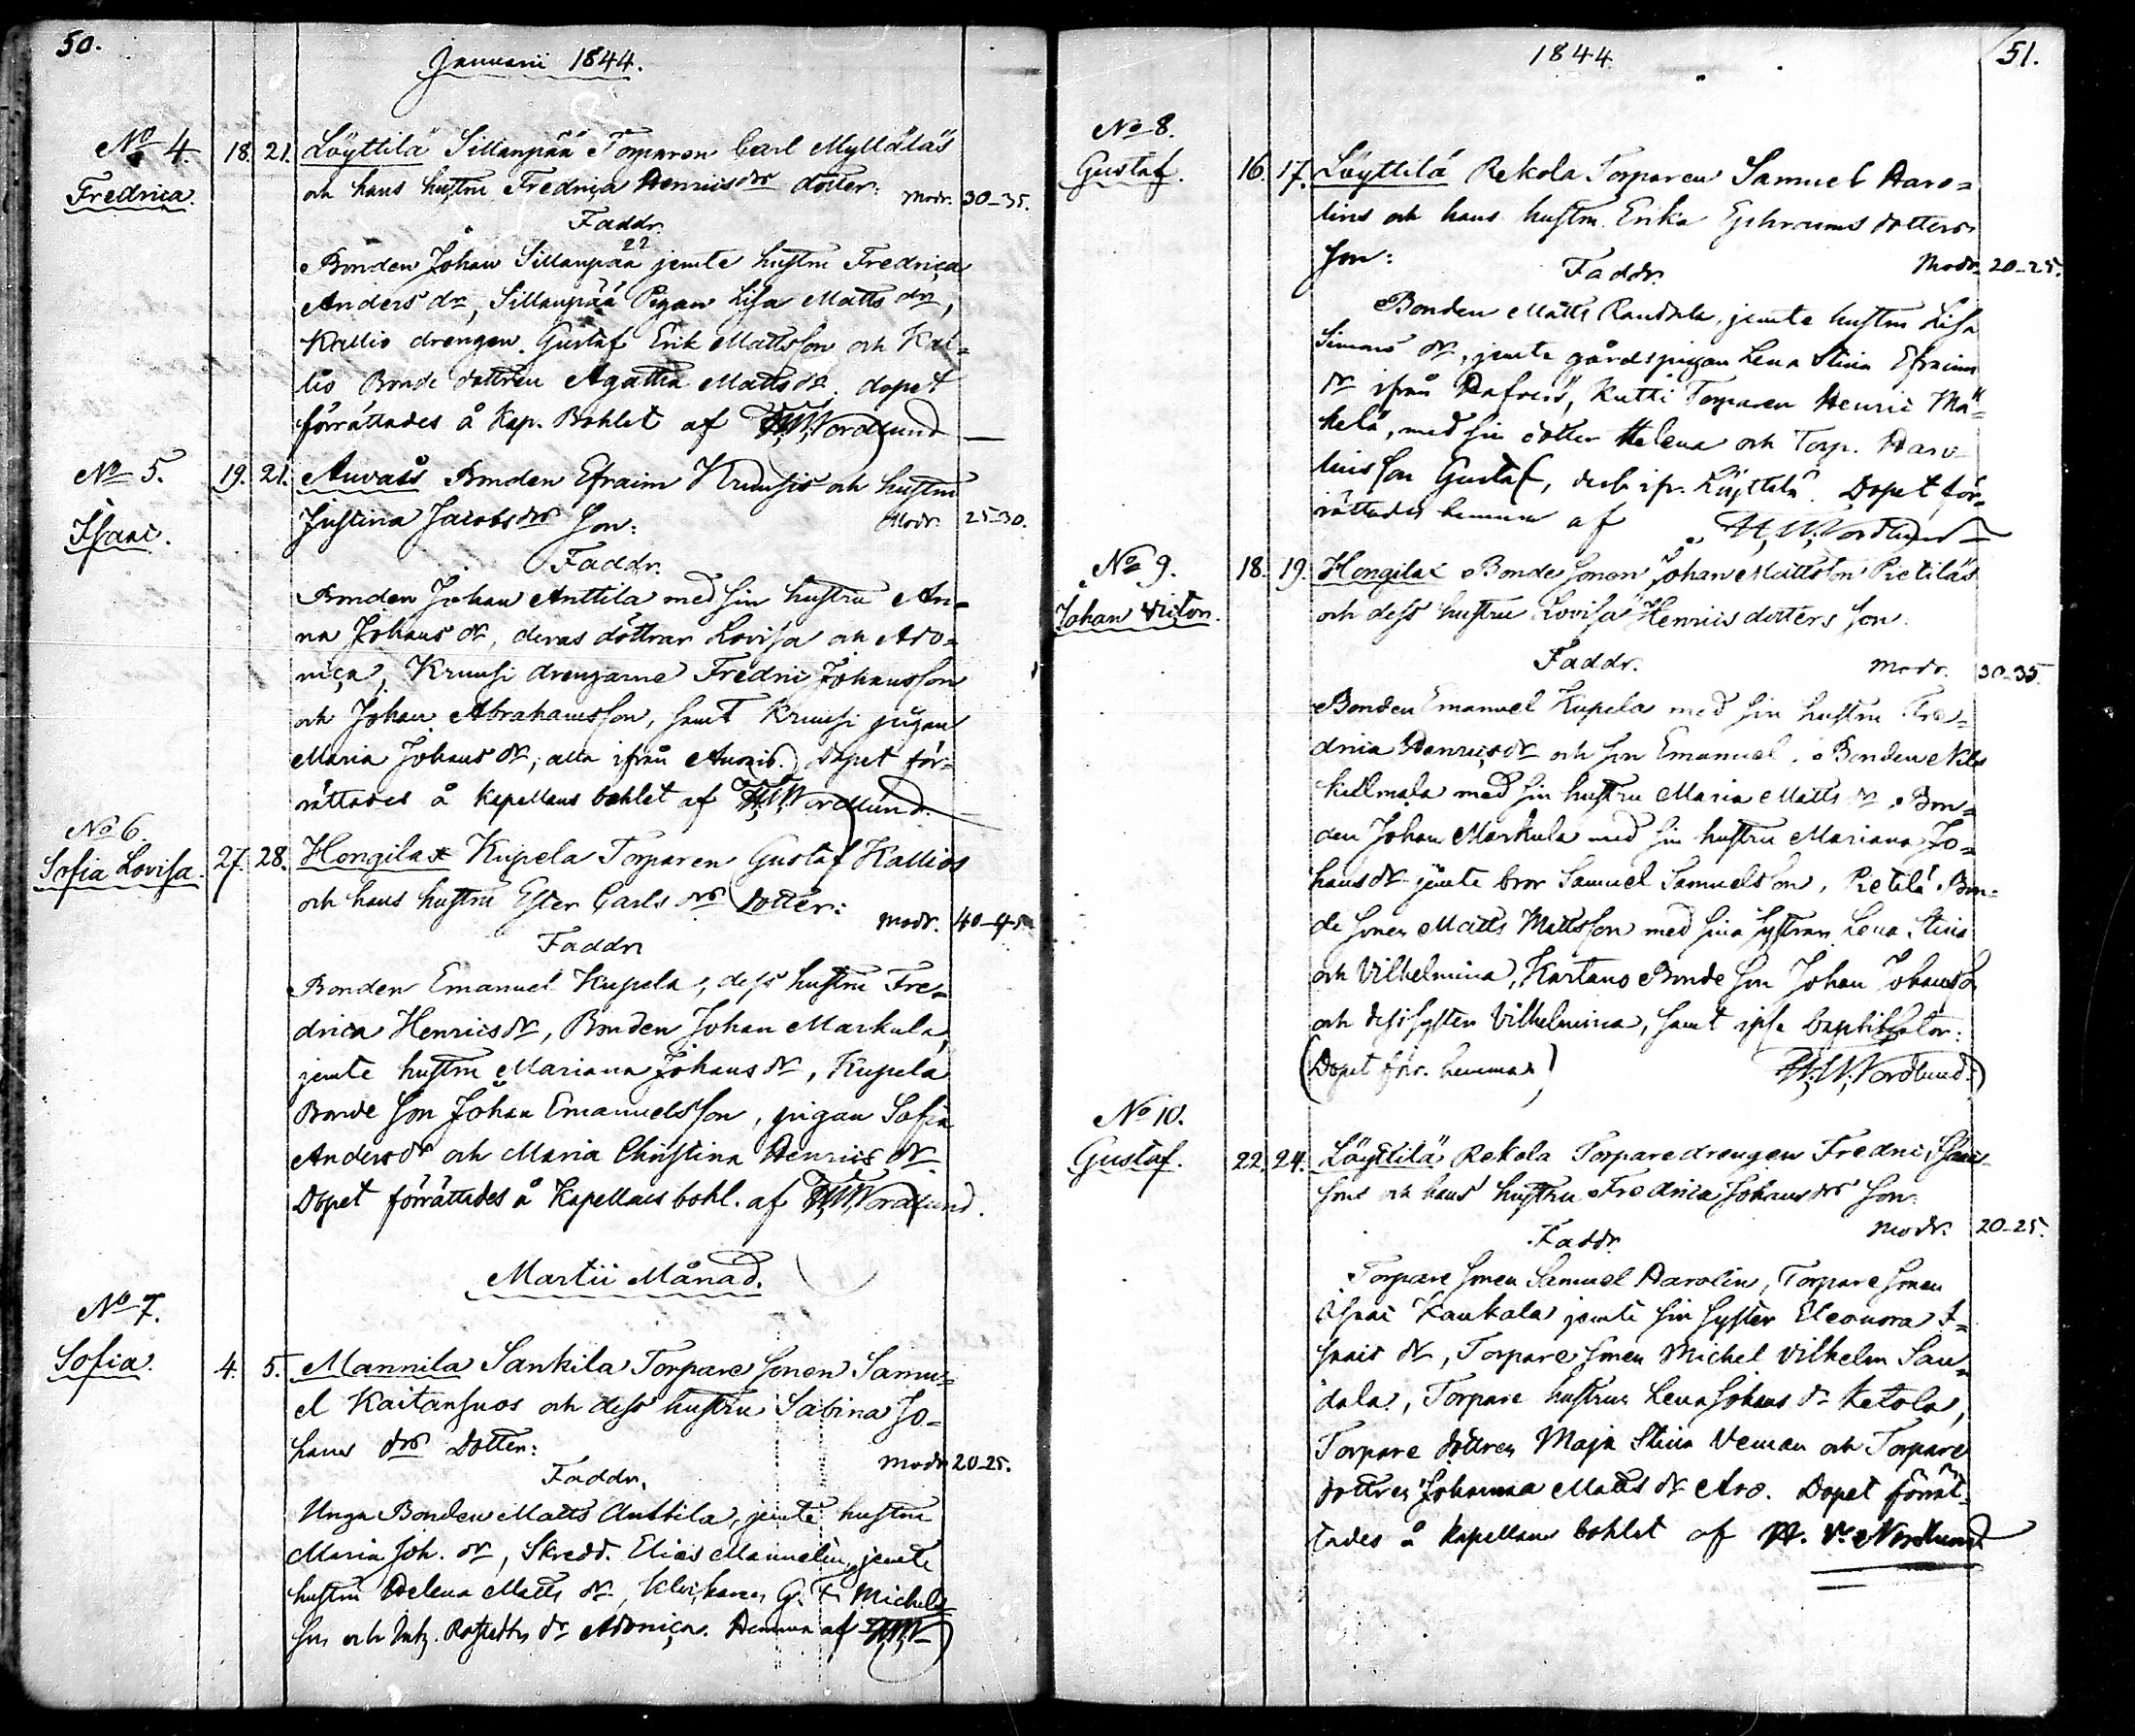 50.
Januarii 1844.
No 4. 18. 21. Löyttilä Sillanpää Torparen Carl Mylläläs
Fredrica. och hans hustru Fredrica Henricsdrs dotter: Modr. 30-35.
Faddr.
Bonden Johan Sillanpää jemte hustru Fredrica
Anders dr, Sillanpää Pigan Lisa Matts dr,
Kallio drengen Gustaf Erik Mattsson och Kal=
lio Bonde dottren Agatha Matts dr. dopet
förrättades å Kap. Bohlet af H.W.Nordlund
No 5. 19. 21. Auvais Bonden Efraim Kruusis och hustru
Isaac. Justina Jacobs drs Son: Modr. 25-30.
Faddr.
Bonden Johan Anttila med sin hustru An=
na Johans dr, deras döttrar Lovisa och Ado=
niça, Kruusi drengarne Fredric Johansson
och Johan Abrahamsson, samt Kruusi pigan
Maria Johans dr, alla ifrån Auvais. Dopet för=
rättades å Kapellans bohlet af H.W.Nordlund.
No 6.
Sofia Lovisa. 27. 28. Hongila Kupela Torparen Gustaf Kallios
och hans hustru Ester Carls drs Dotter: Modr. 40-45
Faddr
Bonden Emanuel Kupela, dess hustru Fre=
drica Henricsdr, Bonden Johan Markula,
jemte hustru Mariana Johans dr, Kupela
Bonde Son Johan Emanuelsson, pigan Sofia
Andersdr och Maria Christina Henrics dr
Dopet förrättades å Kapellans bohl. af H.W.Nordlund.
Martii Månad.
No 7.
Sofia. 4. 5. Mannila Sankila Torpare Sonen Samu=
el Kaitansuos och dess hustru Sabina Jo=
hans drs Dotter: Modr 20-25.
Faddr.
Unga Bonden Matts Anttila, jemte hustru
Maria Joh. dr, Skredd. Elias Mannelin, jemte
hustru Helena Matts dr, G. F. Michels
son och dr Adoniça. Hemma af H.W.N
1844
51.
No 8.
Gustaf. 16. 17. Löyttilä Rekola Torparen Samuel Haro=
lins och hans hustru Erika Ephraims dotters
Son: Faddr. Modr. 20-25.
Bonden Matts Randala, jemte hustru Lisa
Simons dr, jemte gårdspigan Lena Stina Efraims
dr ifrån, Kutti Torparen Henric Mä=
kelä, med sin dotter Helena och Torp. Haro=
lins Son Gustaf, ifr. Löyttilä. Dopet för=
rättades hemma af H.W.Nordlund
No 9. 18. 19. Hongila Bonde Sonen Johan Mattsson Pietiläs
Johan Victor. och dess hustru Lovisa Henrics dotters Son.
Faddr. Modr. 30-35.
Bonden Emanuel Kupela med sin hustru Fre=
drica Henricsdr och Son Emanuel. Bonden Nils
Killmala med sin hustru Maria Matts dr, Bon=
den Johan Markula med sin hustru Mariana Jo=
hansdr jemte bror Samuel Samuelsson, Pietilä Bon=
de Sonen Matts Mattsson med sina systrar Lena Stina
och Vilhelmina, Kartano Bonde Son Johan Johansson
och dess syster Vilhelmina, samt ipse baptisator:
(Dopet förr. hemma) H.W.Nordlund.)
No 10.
Gustaf. 22. 24. Löyttilä Rekola Torparedrengen Fredric Isaacs
Sons och hans hustru Fredrica Johans drs Son.
Faddr. Modr. 20-25.
Torpare Sonen Samuel Harolin, Torpare Sonen
Isaac Kaukala jemte sin syster Eleonora I=
saacs dr, Torpare Sonen Michel Vilhelm San=
dala, Torpare hustrun Lena Johans dr Ketola,
Torpare dottren Maja Stina Veman och Torpare
dottren Johanna Matts dr Aro. Dopet förrät=
tades å Kapellans bohlet af H. W. Nordlund